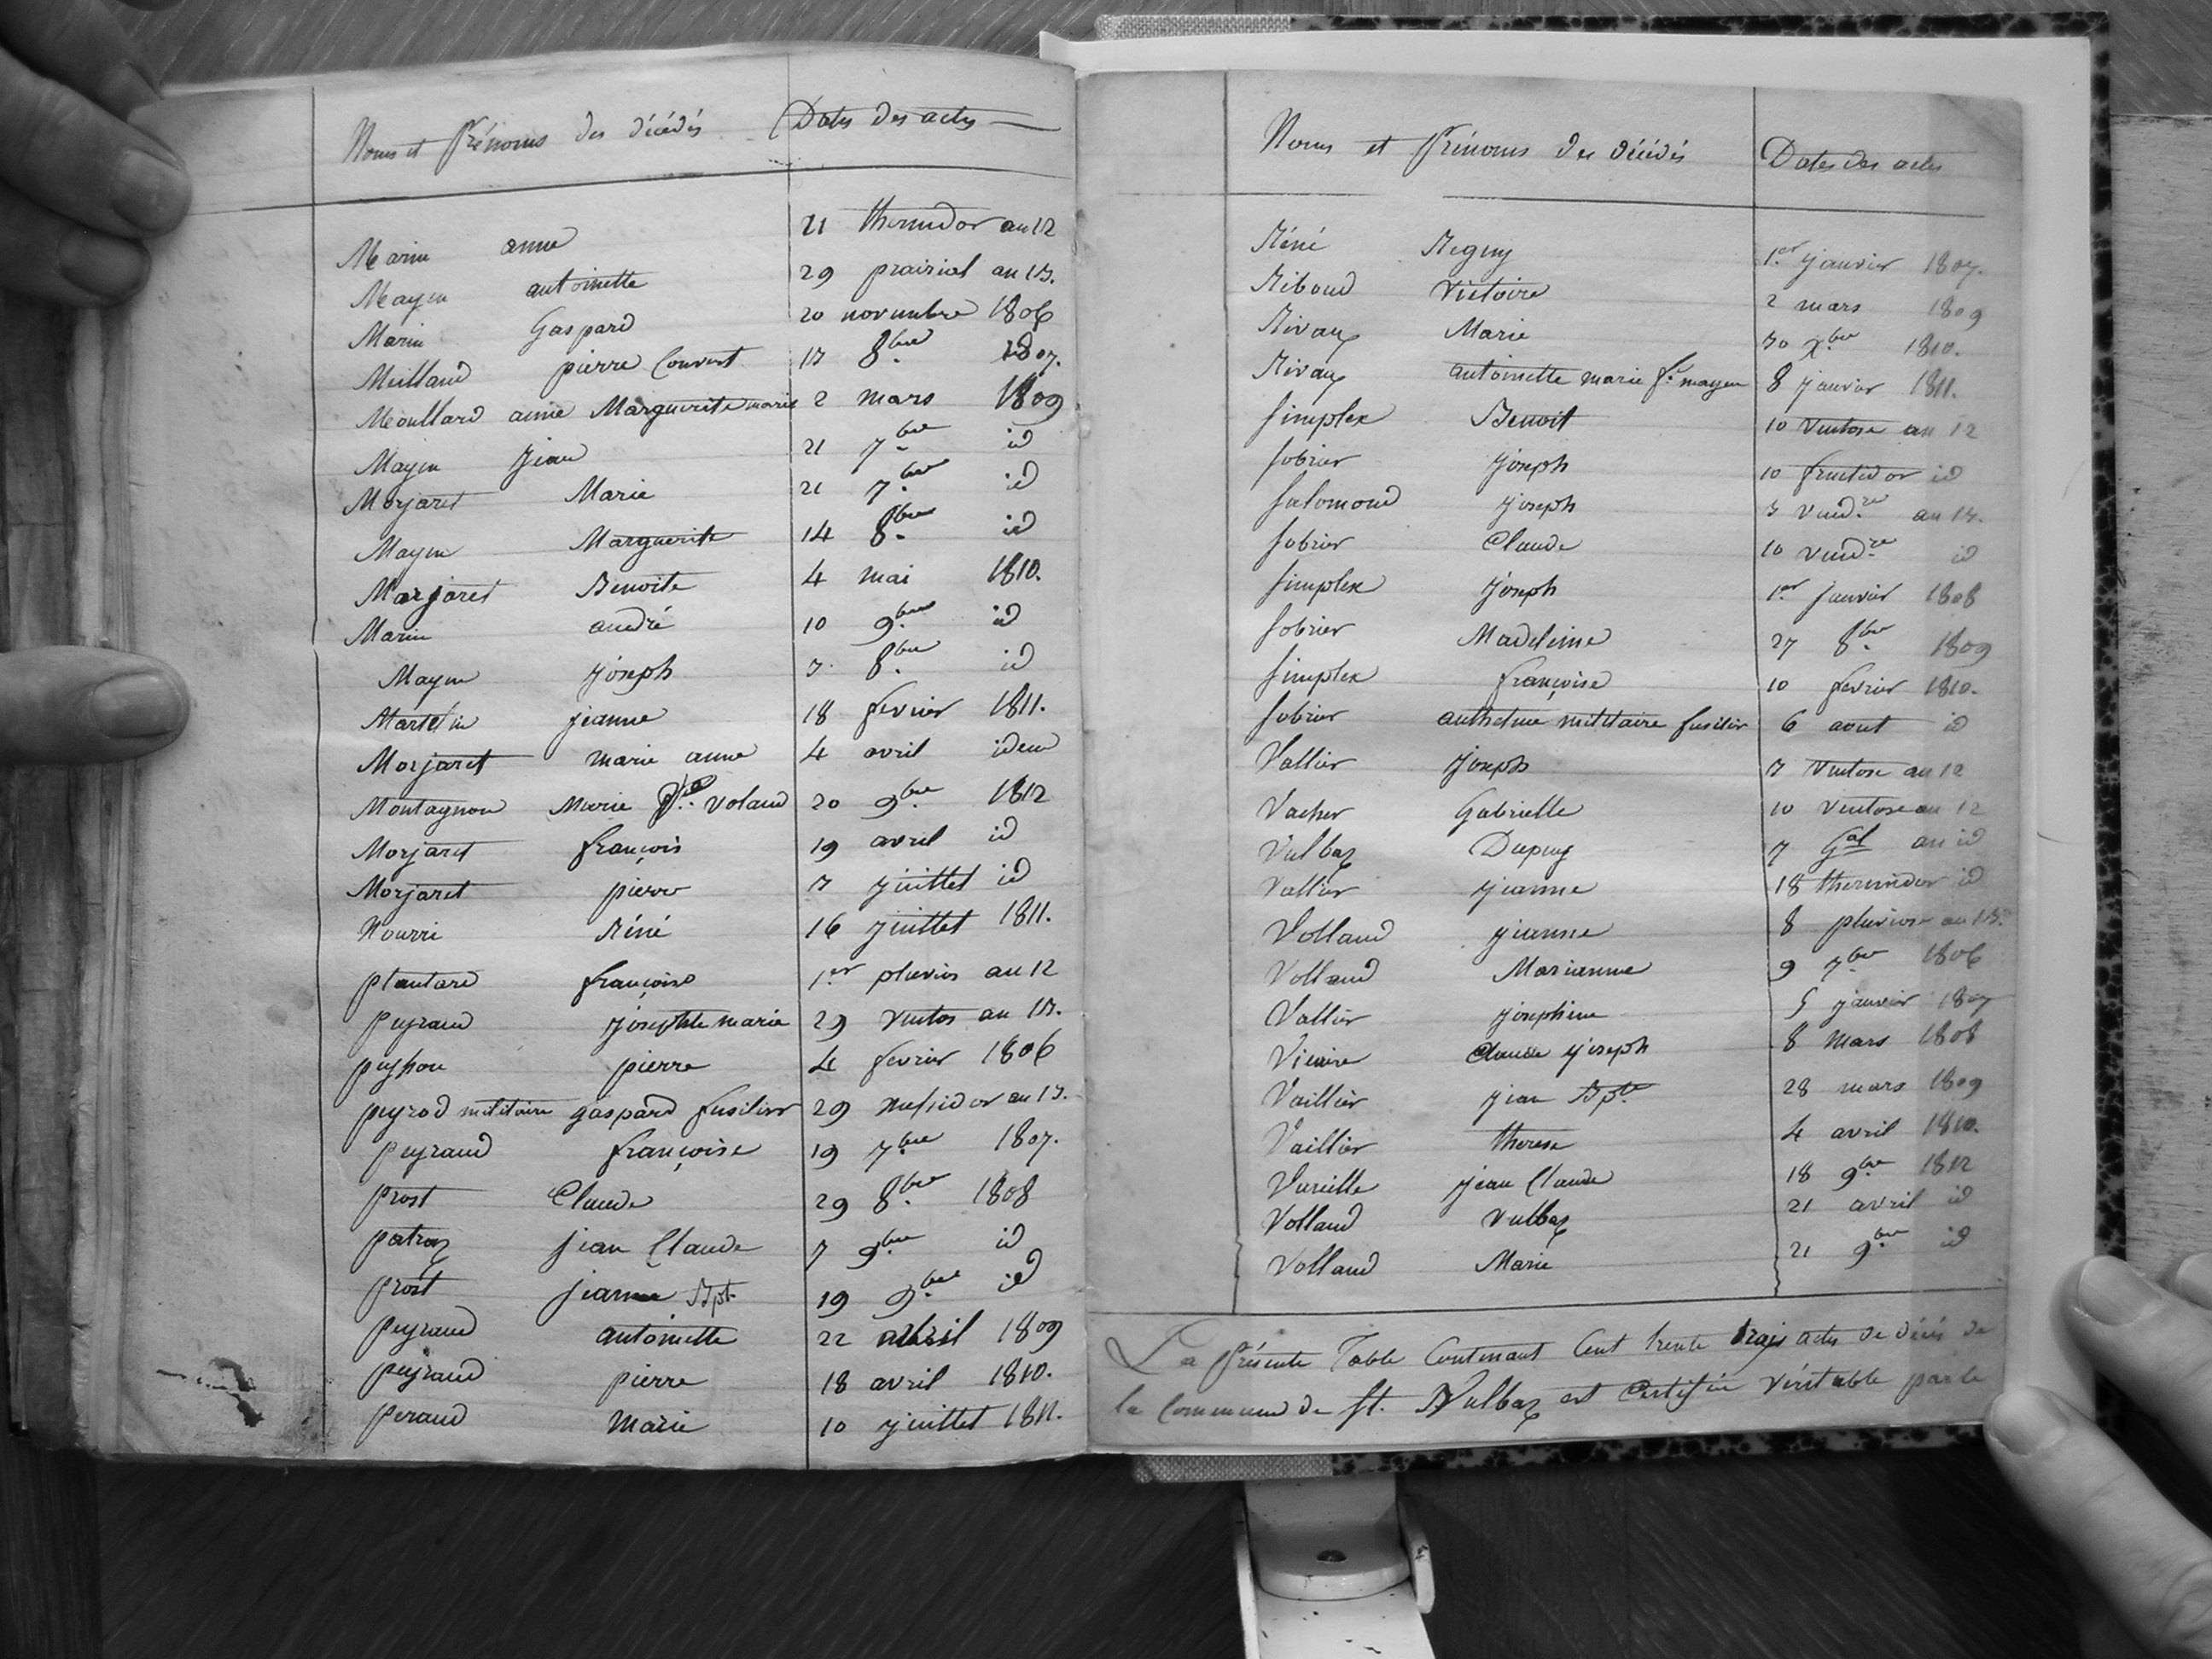 Noms et Prénoms des décédés Dates des actes
Marin anne 21 thermidor an 12
Mayen antoinette 29 prairial an 13.
Marin Gaspard 20 novembre 1806
Meilland pierre Convert 13 8bre 1807.
Meoullard anne Marguerite marie 2 mars 1809
Mayen jean 21 7bre id
Morjaret Marie 21 7bre id
Mayen Marguerite 14 8bre id
Marjaret Benoite 4 mai 1810.
Marin andré 10 9bre id
Mayen joseph 3. 8bre id
Martelin jeanne 18 fevrier 1811.
Morjaret marie anne 4 avril idem
Montagnon Marie Vve. Voland 20 9bre 1812
Morjaret françois 19 avril id
Morjaret pierre 3 juillet id
Nourri Réné 16 juillet 1811.
plantard françoise 1er pluvios an 12
peyraud josephte marie 29 ventos an 13.
peyson pierre 4 fevrier 1806
peyrod militaire gaspard fusilier 29 messidor an 13.
peyraud françoise 19 7bre 1807.
prost Claude 29 8bre 1808
patraz jean Claude 3 9bre id
prost jeanne Bpt. 19 9bre id
peyraud antoinette 22 avril 1809
peyraud pierre 18 avril 1810.
peraud Marie 10 juillet 1811.
Noms et Prénoms des décédés Dates des actes
Réné Regny 1er janvier 1807.
Riboud Victoire 2 mars 1809
Rivaux Marie 30 Xbre 1810.
Rivaux antoinette marie fe. mayen 8 janvier 1811.
Simplex Benoit 10 Ventose an 12
Sobrier joseph 10 fructidor id
Salomond joseph 3 Vendre an 13.
Sobrier Claude 10 vendre id
Simplex joseph 1er janvier 1808
Sobrier Madeleine 27 8bre 1809
Simplex françoise 10 fevrier 1810.
Sobrier anthelme militaire fusilier 6 aout id
Vallier joseph 3 Ventose an 12
Vacher Gabrielle 10 Ventose an 12
Vulbaz Dupuy 7 Gal an id
Vallier jeanne 18 thermidor id
Volland jeanne 8 pluviose an 13.
Volland Marianne 9 7bre 1806
Vallier josephine 5 janvier 1807
Vicaire Claude joseph 8 Mars 1808
Vaillier jean Bpte 28 mars 1809
Vaillier therese 4 avril 1810.
Vareille jean Claude 18 9bre 1812
Volland Vulbaz 21 avril id
Volland Marie 21 9bre id
La présente Table Contenant Cent trente trois actes de décés de
la Commune de St. Vulbaz est Certifiée Véritable par le